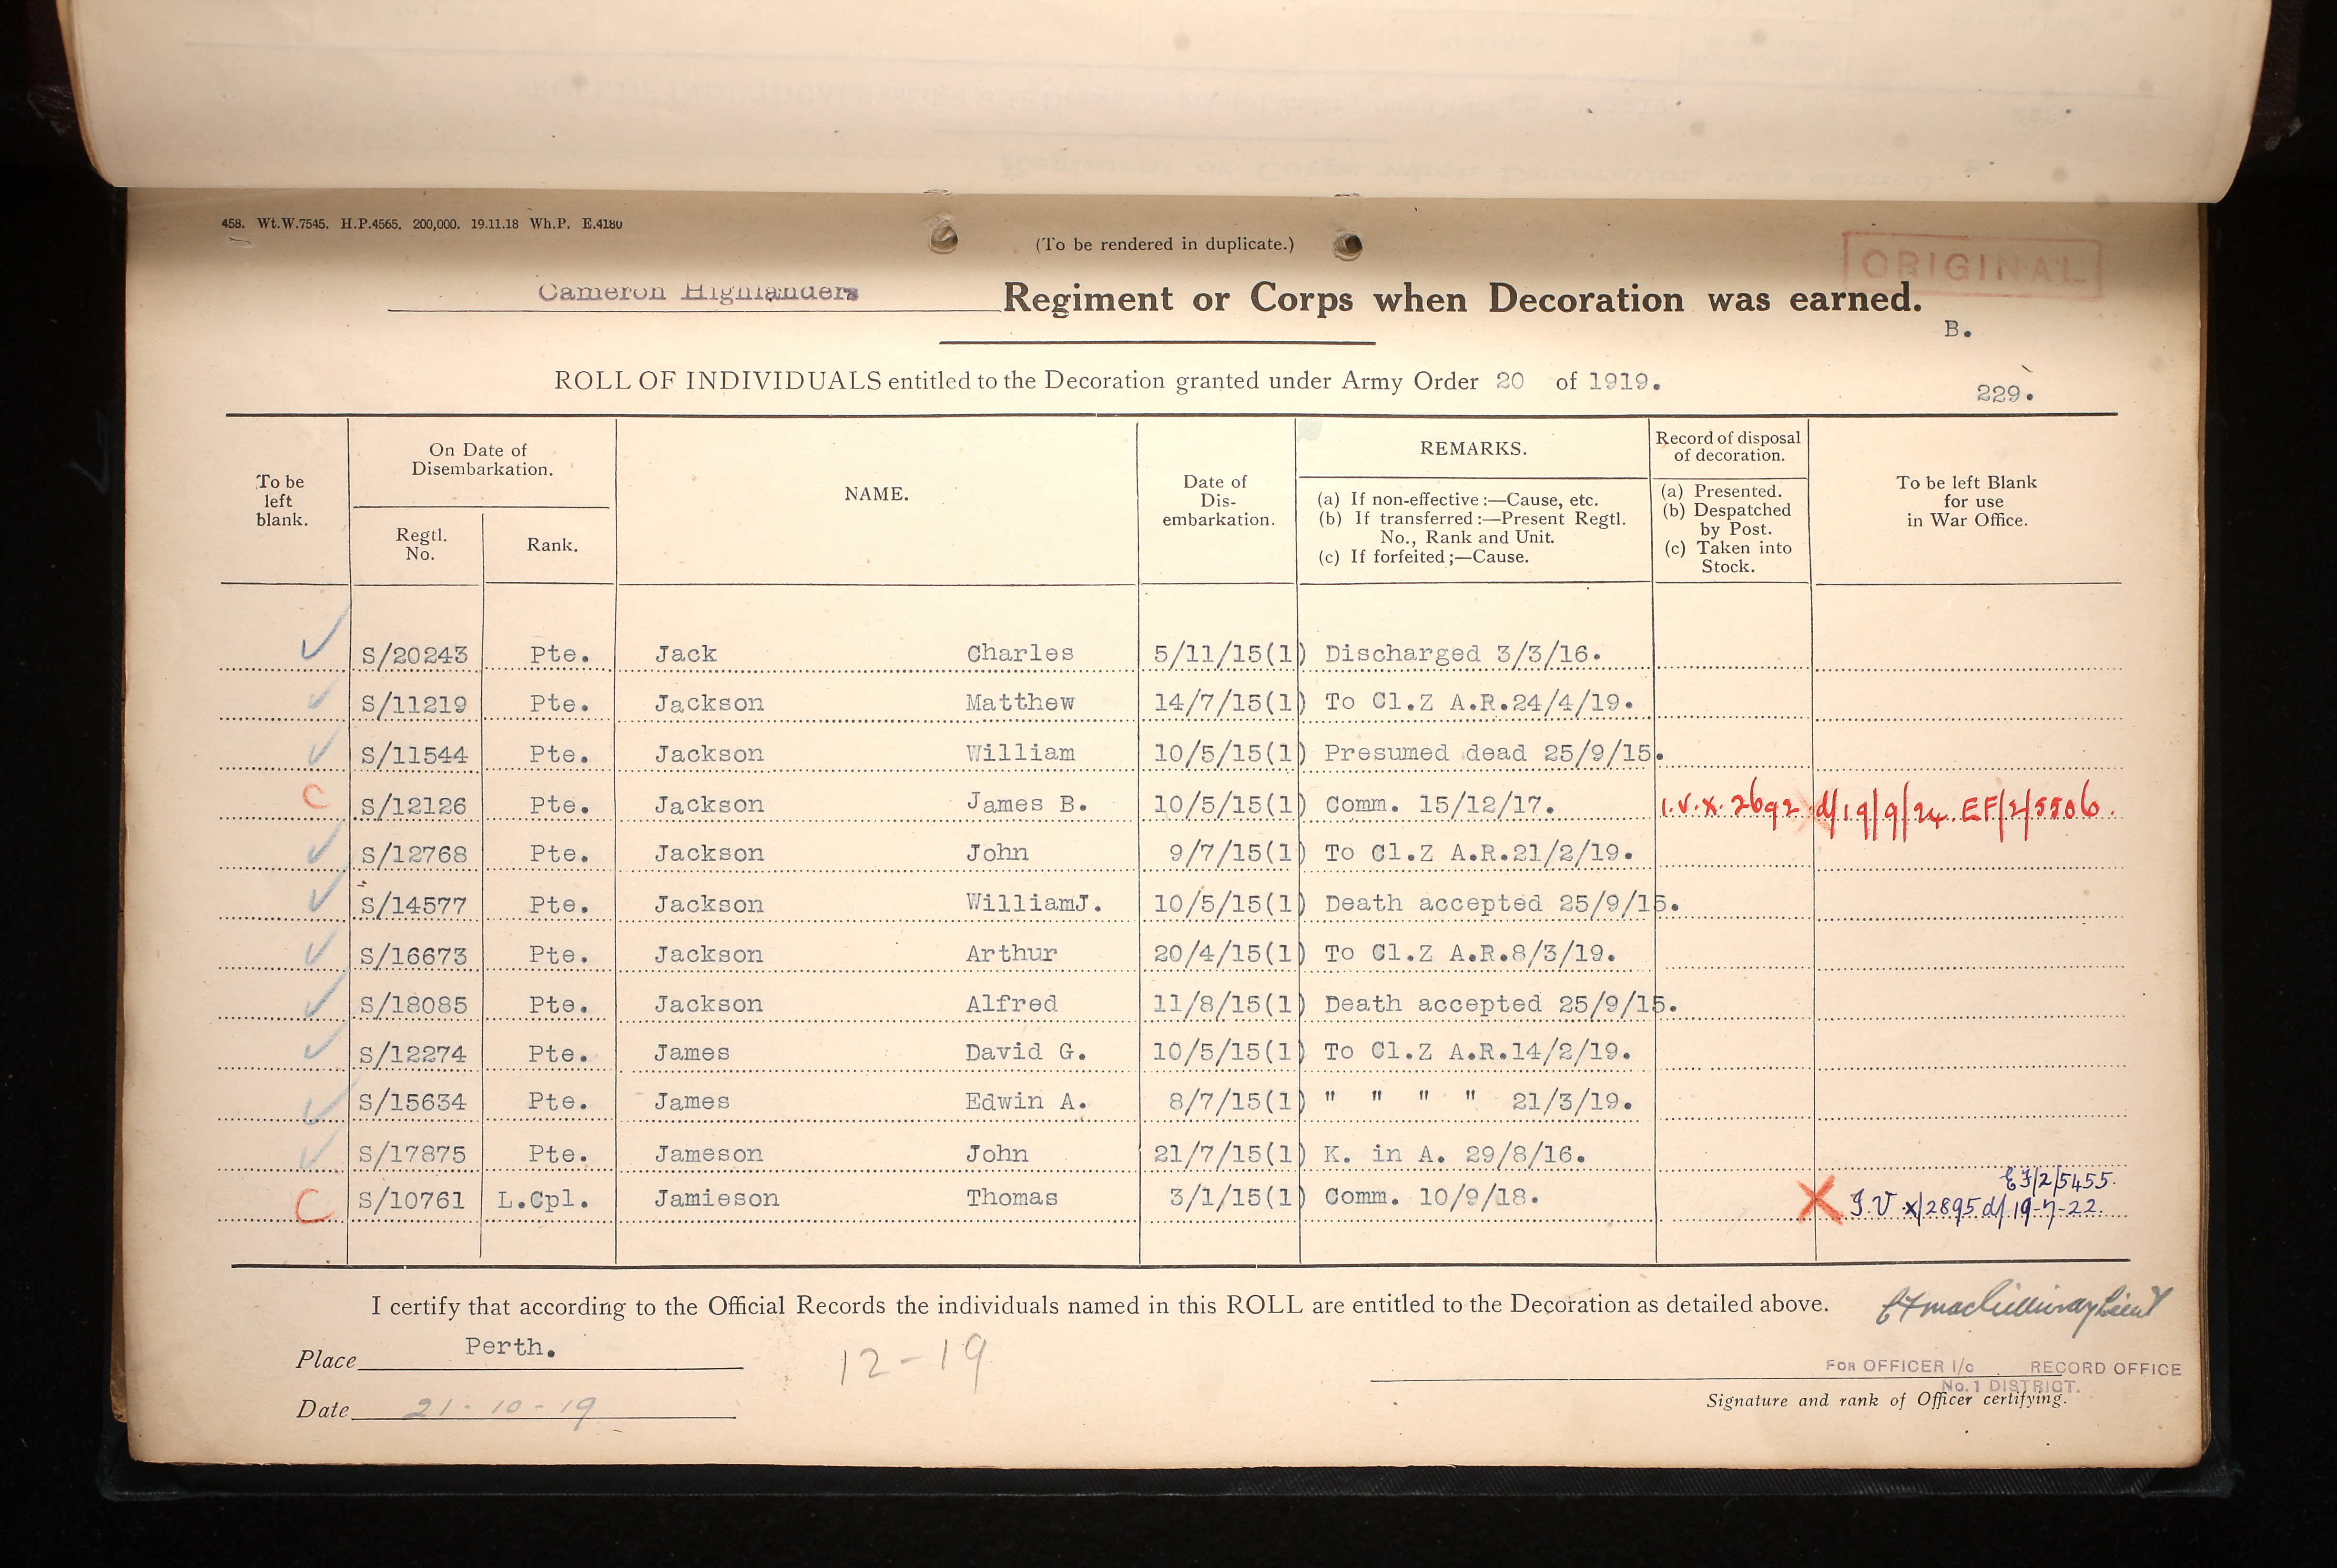 458. Wt.W.7545. H.P.4565. 200,000. 19.11.18 Wh.P. E.4180
(To be rendered in duplicate.)
ORIGINAL
Cameron Highlanders Regiment or Corps when Decoration was earned.
B.
ROLL OF INDIVIDUALS entitled to the Decoration granted under Army Order 20 of 1919.
229.
To be left blank.
On Date of Disembarkation.
Regtl. No.
Rank.
NAME.
Date of Dis-embarkation.
REMARKS.
(a) If non-effective:—Cause, etc.
(b) If transferred:—Present Regtl. No., Rank and Unit.
(c) If forfeited;—Cause.
Record of disposal of decoration.
(a) Presented.
(b) Despatched by Post.
(c) Taken into Stock.
To be left Blank for use in War Office.
✓ S/20243 Pte. Jack Charles 5/11/15(1) Discharged 3/3/16.
✓ S/11219 Pte. Jackson Matthew 14/7/15(1) To Cl.Z A.R.24/4/19.
✓ S/11544 Pte. Jackson William 10/5/15(1) Presumed dead 25/9/15.
C S/12126 Pte. Jackson James B. 10/5/15(1) Comm. 15/12/17. I.V.X.2692 d/19/9/24. EF/2/5506.
✓ S/12768 Pte. Jackson John 9/7/15(1) To Cl.Z A.R.21/2/19.
✓ S/14577 Pte. Jackson WilliamJ. 10/5/15(1) Death accepted 25/9/15.
✓ S/16673 Pte. Jackson Arthur 20/4/15(1) To Cl.Z A.R.8/3/19.
✓ S/18085 Pte. Jackson Alfred 11/8/15(1) Death accepted 25/9/15.
✓ S/12274 Pte. James David G. 10/5/15(1) To Cl.Z A.R.14/2/19.
✓ S/15634 Pte. James Edwin A. 8/7/15(1) " " " " 21/3/19.
✓ S/17875 Pte. Jameson John 21/7/15(1) K. in A. 29/8/16.
EF/2/5455.
C S/10761 L.Cpl. Jamieson Thomas 3/1/15(1) Comm. 10/9/18. X I.V x/2895 d/ 19-7-22.
I certify that according to the Official Records the individuals named in this ROLL are entitled to the Decoration as detailed above.
Lieut
Place Perth.
12-19
FOR OFFICER I/c RECORD OFFICE
No. 1 DISTRICT.
Date 21-10-19
Signature and rank of Officer certifying.